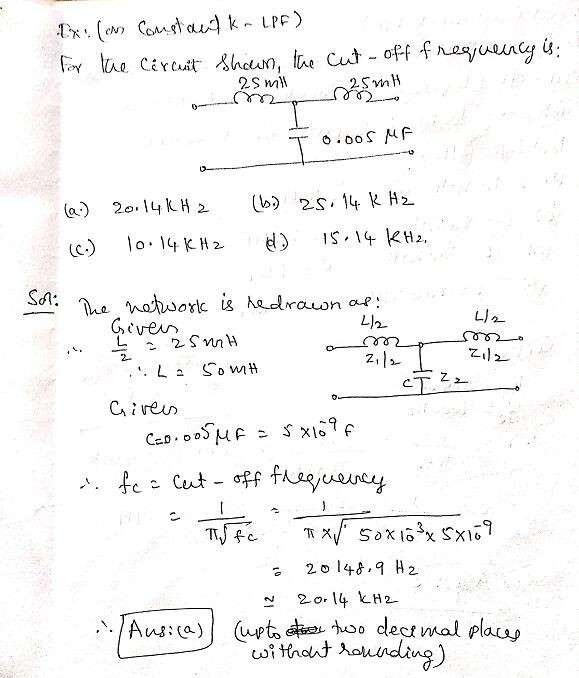 Ex: (on Constant K - LPF)
For the circuit shown, the cut-off frequency is:
25mH 25mH
0.005 μF
(a.) 20.14KHz (b.) 25.14 KHz
(c.) 10.14KHz (d.) 15.14 KHz.
Soln: The network is redrawn as:
L/2 L/2
Z1/2 Z1/2
C Z2
Given
∴ L/2 = 25mH
∴ L = 50mH
Given
C=0.005μF = 5×10^-9 F
∴ fc = Cut-off frequency
= 1/(π√fc) = 1/(π×√50×10^-3×5×10^-9)
= 20148.9 Hz
≃ 20.14 KHz
∴ Ans:(a) (upto two decimal places
without rounding)